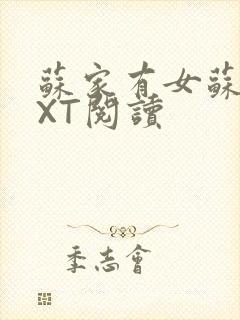 蘇家有女蘇
XT閱讀
季志會